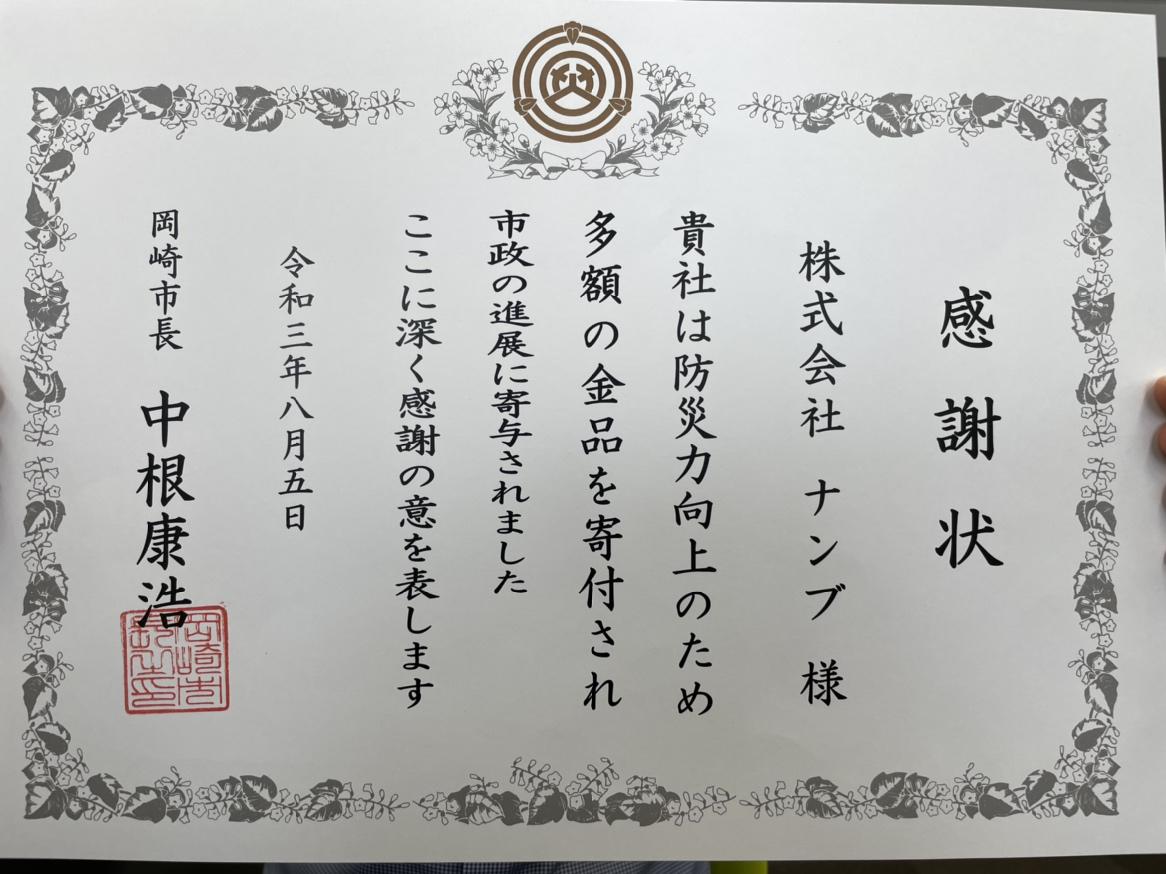 感謝状
株式会社 ナンブ 様
貴社は防災力向上のため
多額の金品を寄付され
市政の進展に寄与されました
ここに深く感謝の意を表します
令和三年八月五日
岡崎市長 中根康浩
岡崎市
長之印